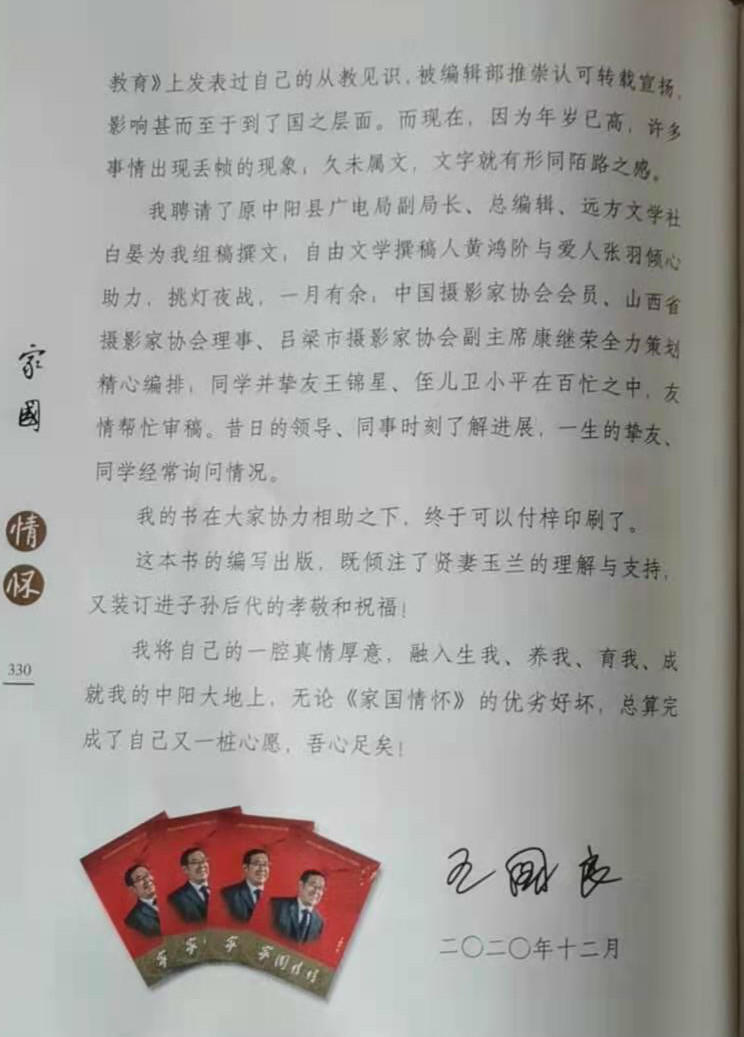 教育》上发表过自己的从教见识，被编辑部推崇认可转载宣扬，
影响甚而至于到了国之层面。而现在，因为年岁已高，许多
事情出现丢帧的现象；久未属文，文字就有形同陌路之感。
我聘请了原中阳县广电局副局长、总编辑、远方文学社
白晏为我组稿撰文；自由文学撰稿人黄鸿阶与爱人张羽倾心
助力，挑灯夜战，一月有余；中国摄影家协会会员、山西省
摄影家协会理事、吕梁市摄影家协会副主席康继荣全力策划
精心编排；同学并挚友王锦星、侄儿卫小平在百忙之中，友
情帮忙审稿。昔日的领导、同事时刻了解进展，一生的挚友、
同学经常询问情况。
我的书在大家协力相助之下，终于可以付梓印刷了。
这本书的编写出版，既倾注了贤妻玉兰的理解与支持，
又装订进子孙后代的孝敬和祝福！
我将自己的一腔真情厚意，融入生我、养我、育我、成
就我的中阳大地上，无论《家国情怀》的优劣好坏，总算完
成了自己又一桩心愿，吾心足矣！
家國
情怀
330
王国良
二〇二〇年十二月
家国情怀